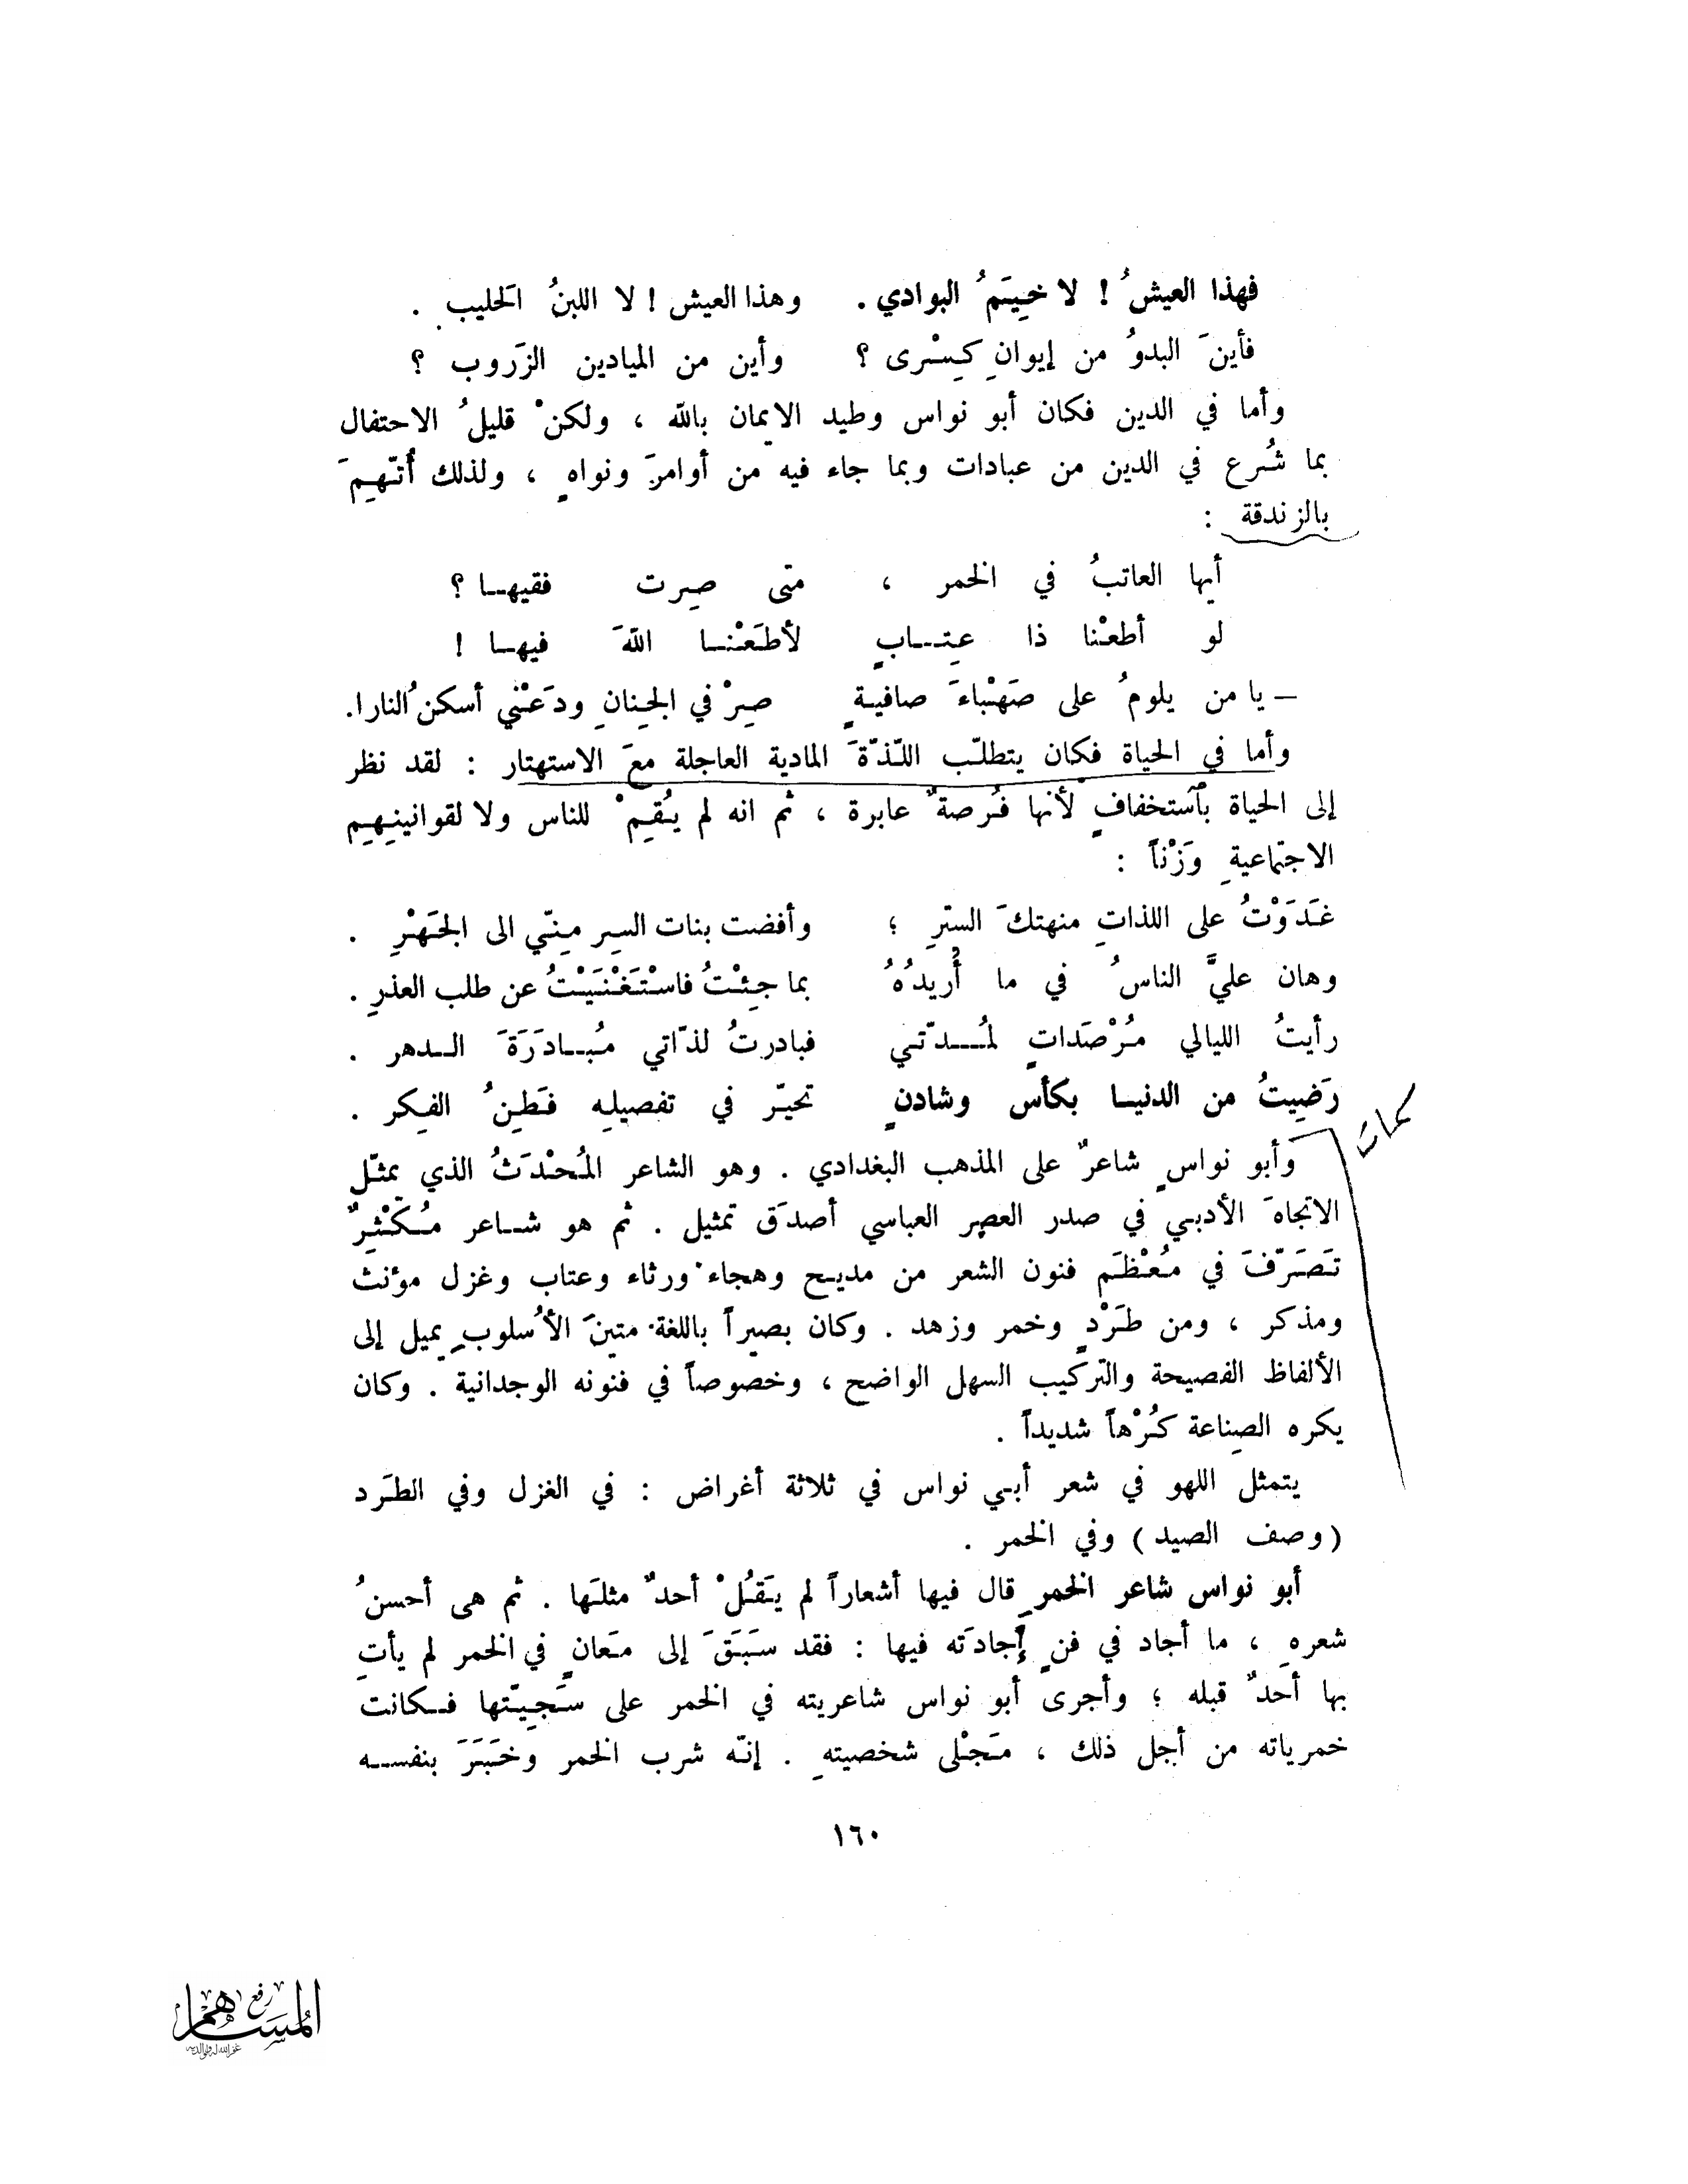 فهذا العيشُ ! لا خِيَمُ البوادي . وهذا العيش ! لا اللبنُ الحَليب .
فأينَ البدوُ من إيوانِ كِسْرى ؟ وأين من الميادين الزَروب ؟
وأما في الدين فكان أبو نواس وطيد الايمان بالله ، ولكنْ قليلُ الاحتفال
بما شُرع في الدين من عبادات وبما جاء فيه من أوامرَ ونواهٍ ، ولذلك أُتّهِمَ
بالزندقة :
أيها العاتبُ في الخمر ، متى صِرت فقيهـا ؟
لو أطعْنا ذا عِتـابٍ لأطَعْنـا اللهَ فيهـا !
– يا من يلومُ على صَهْباءَ صافيةٍ صِرْ في الجِنانِ ودَعْني أسكنُ النارا .
وأما في الحياة فكان يتطلّب اللّذّةَ المادية العاجلة معَ الاستهتار : لقد نظر
إلى الحياة بٱستخفافٍ لأنها فُرصةٌ عابرة ، ثم انه لم يُقِمْ للناس ولا لقوانينِهِم
الاجتماعيةِ وَزْناً :
غَدَوْتُ على اللذاتِ منهتكَ السترِ ؛ وأفضت بنات السِر مِنّي الى الجَهْرِ .
وهان عليَّ الناسُ في ما أُريدُهُ بما جِئْتُ فاسْتَغْنَيْتُ عن طلب العذرِ .
رأيتُ الليالي مُرْصَداتٍ لمُـدّتي فبادرتُ لذّاتي مُبـادَرَةَ الـدهر .
رَضِيتُ من الدنيـا بكأس وشادنٍ تحيّر في تفصيلِه فَطِنُ الفِكر .
سمات
وأبو نواسٍ شاعرٌ على المذهب البغدادي . وهو الشاعر المُحْدَثُ الذي يمثّل
الاتجاهَ الأدبي في صدر العصر العباسي أصدقَ تمثيل . ثم هو شـاعر مُكْثِرٌ
تَصَرّفَ في مُعْظَم فنون الشعر من مديح وهجاء ورثاء وعتاب وغزل مؤنث
ومذكر ، ومن طَرْدٍ وخمر وزهد . وكان بصيراً باللغة متينَ الأُسلوبِ يميل إلى
الألفاظ الفصيحة والتركيب السهل الواضح ، وخصوصاً في فنونه الوجدانية . وكان
يكره الصِناعة كُرْهاً شديداً .
يتمثل اللهو في شعر أبي نواس في ثلاثة أغراض : في الغزل وفي الطَرد
( وصف الصيد ) وفي الخمر .
أبو نواس شاعر الخمرِ قال فيها أشعاراً لم يَقُلْ أحدٌ مثلَها . ثم هى أحسنُ
شعرهِ ، ما أجاد في فنٍ إجادَته فيها : فقد سَبَقَ إلى مَعانٍ في الخمر لم يأتِ
بها أحدٌ قبله ؛ وأجرى أبو نواس شاعريته في الخمر على سَجِيّتها فـكانت
خمرياته من أجل ذلك ، مَجْلى شخصيتهِ . إنّه شرب الخمر وخَبَرَ بنفسـه
١٦٠
رفع المساهم
غفر الله له ولوالديه